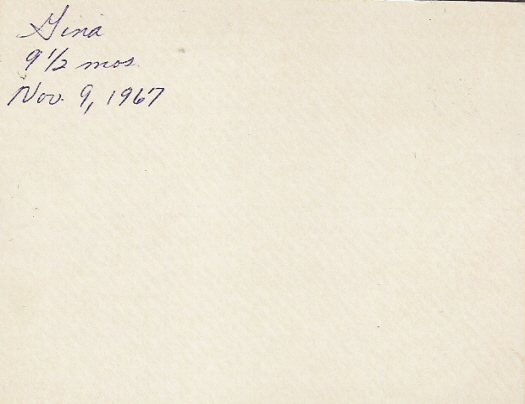 Gina
9 1/2 mos
Nov. 9, 1967